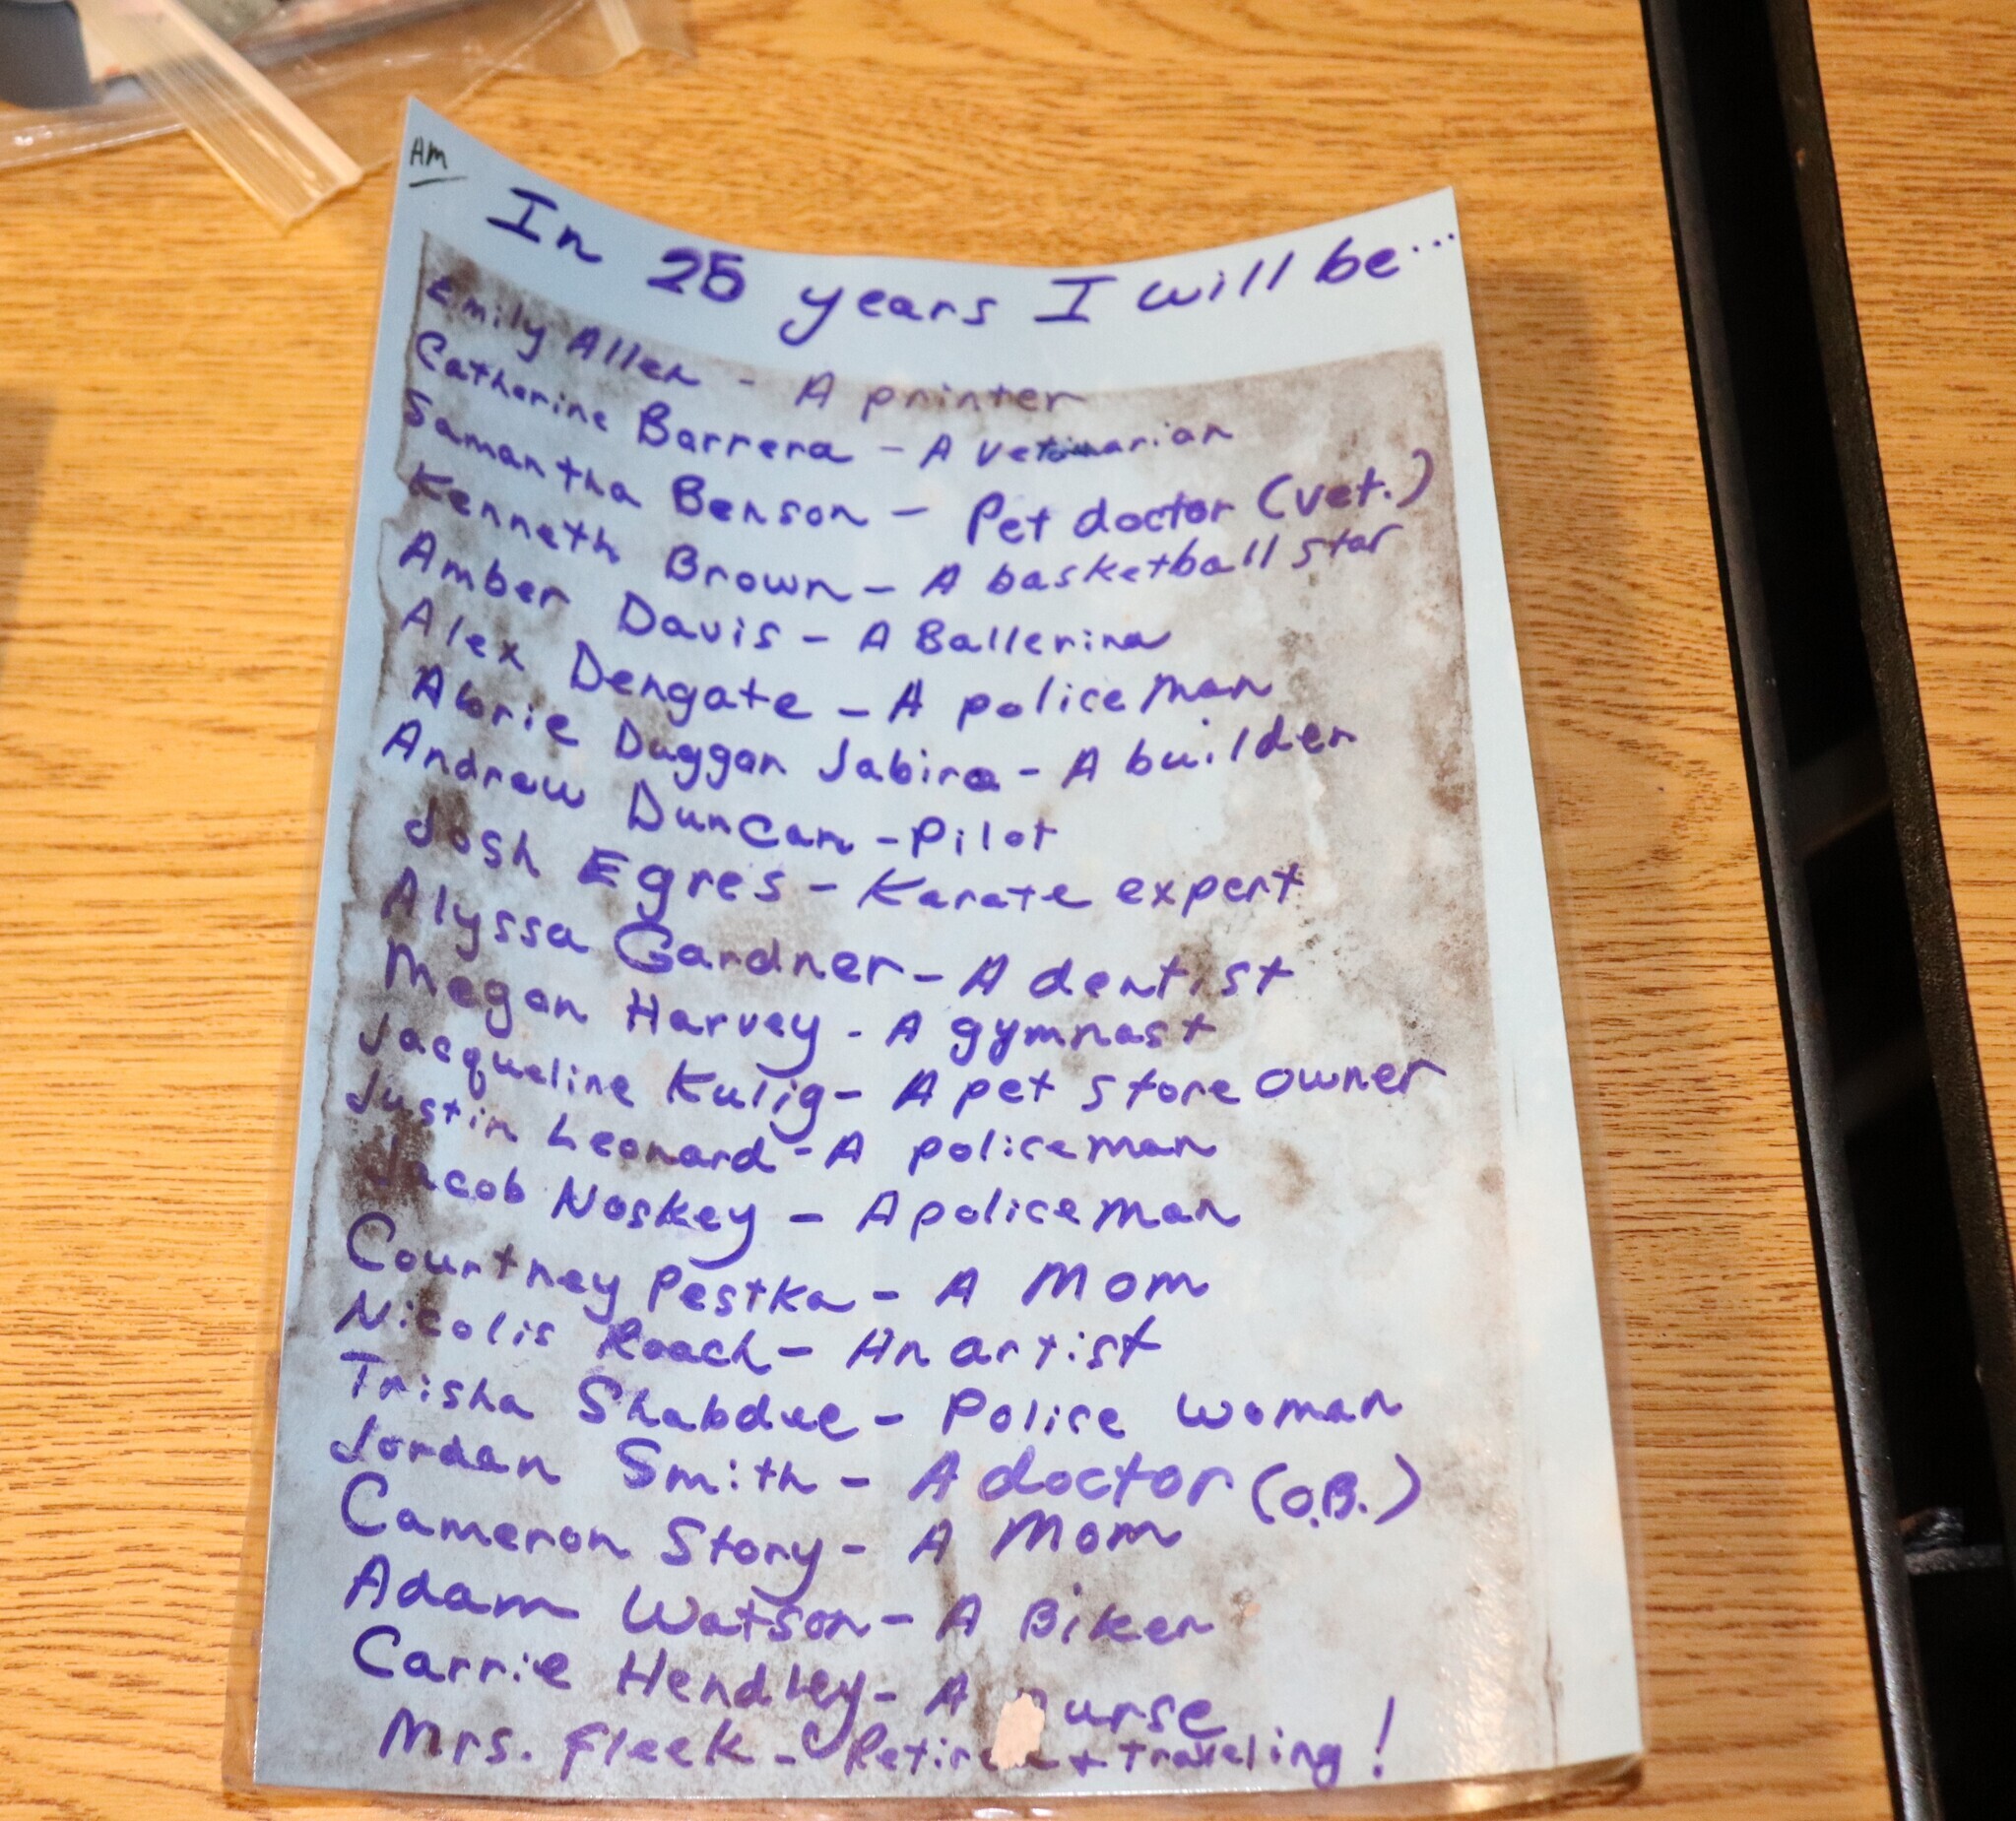 AM
In 25 years I will be...
Emily Allen - A printer
Catherine Barrera - A vetinarian
Samantha Benson - Pet doctor (vet.)
Kenneth Brown - A basketball star
Amber Davis - A Ballerina
Alex Dengate - A policeman
Duggan Jabira - A builder
Andrew Duncan - Pilot
Josh Egres - Karate expert
Alyssa Gardner - A dentist
Megan Harvey - A gymnast
Jacqueline Kulig - A pet store owner
Justin Leonard - A policeman
Jacob Noskey - A policeman
Courtney Pestka - A Mom
Nicolis Roach - An artist
Trisha Shabdue - Police woman
Jordan Smith - A doctor (O.B.)
Cameron Story - A Mom
Adam Watson - A Biker
Carrie Hendley - A nurse
Mrs. Fleek - + traveling!